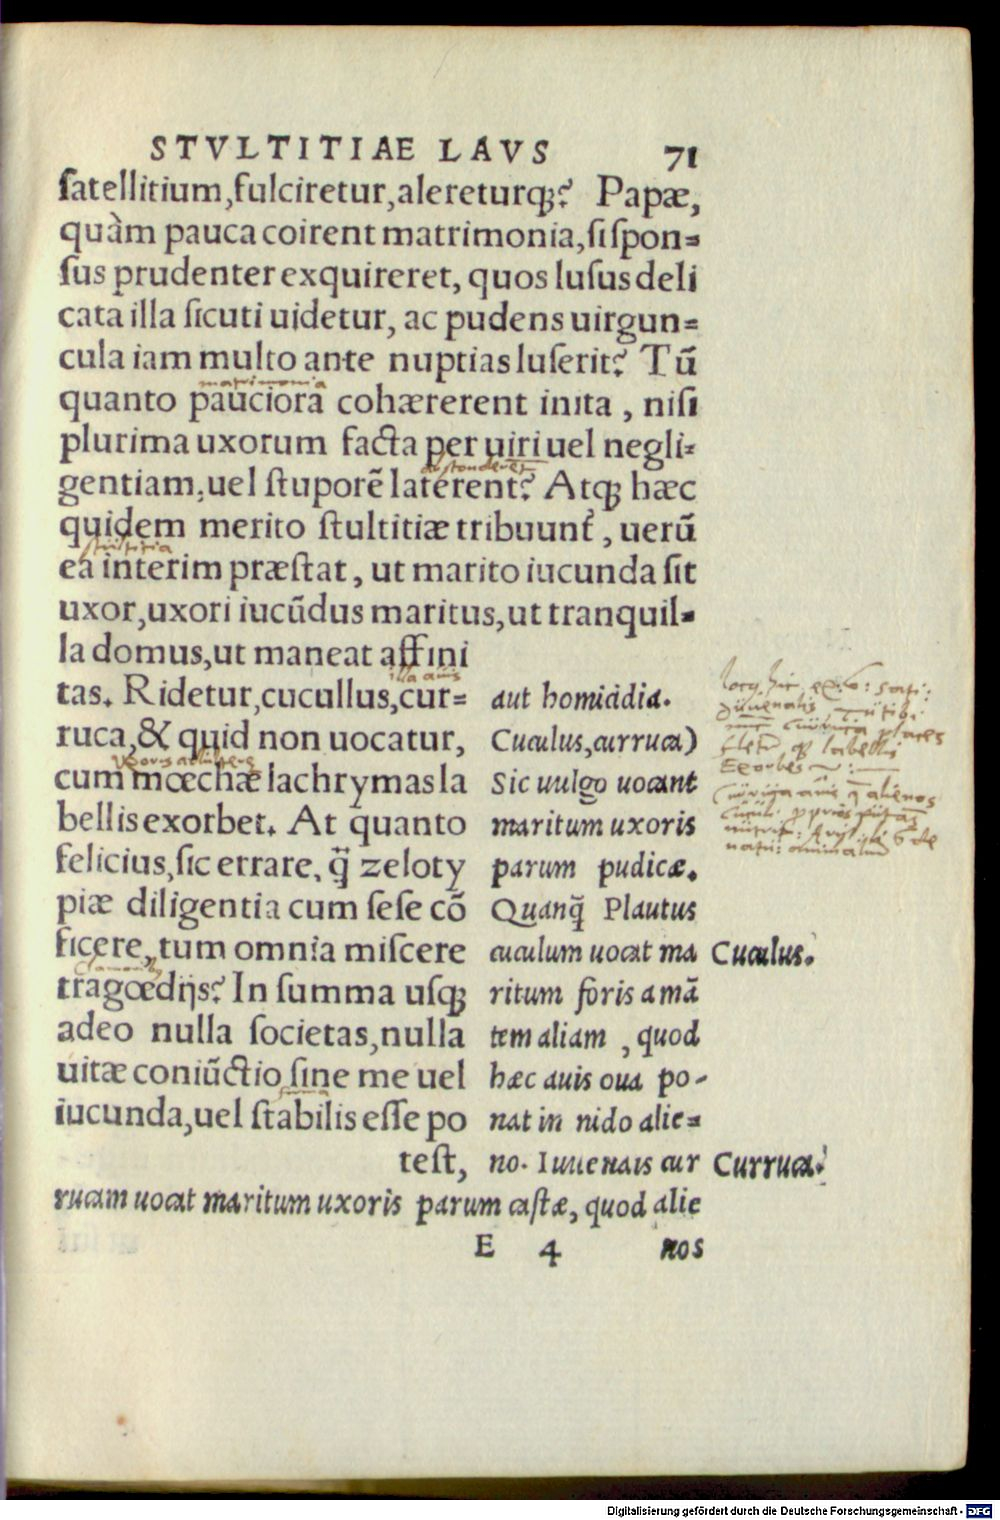 STVLTITIAE LAVS 71
satellitium, fulciretur, alereturqꝫ? Papæ,
quàm pauca coirent matrimonia, si spon=
sus prudenter exquireret, quos lusus deli
cata illa sicuti uidetur, ac pudens uirgun=
cula iam multo ante nuptias luserit? Tũ
matrimonia
quanto pauciora cohærerent inita, nisi
plurima uxorum facta per uiri uel negli=
gentiam, uel stuporẽ laterent? Atqꝫ hæc
quidem merito stultitiæ tribuunt᷑, uerũ
stultitia
ea interim præstat, ut marito iucunda sit
uxor, uxori iucũdus maritus, ut tranquil=
la domus, ut maneat affini
illa auis
tas. Ridetur, cucullus, cur=
ruca, & quid non uocatur,
cum mœchæ lachrymas la
bellis exorbet. At quanto
felicius, sic errare, q̃ zeloty
piæ diligentia cum sese cõ
ficere, tum omnia miscere
tragœdijs? In summa usqꝫ
adeo nulla societas, nulla
uitæ coniũctio sine me uel
iucunda, uel stabilis esse po
test,
aut homicidia.
Cuculus, curruca)
Sic uulgo uocant
maritum uxoris
parum pudicæ.
Quanq̃ Plautus
cuculum uocat ma
ritum foris amã
tem aliam, quod
hæc auis oua po-
nat in nido alie=
no. Iuuenais cur
rucam uocat maritum uxoris parum castæ, quod alie
E 4 nos
Cuculus.
Curruca.
Digitalisierung gefördert durch die Deutsche Forschungsgemeinschaft - DFG